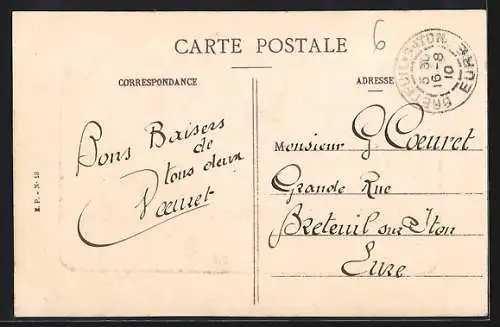 CARTE POSTALE
6
CORRESPONDANCE
ADRESSE
BRETEUIL-S-ITON
5 30
16-8
10
EURE
Bons Baisers
de
tous deux
Coeuret
Monsieur G. Coeuret
Grande Rue
Breteuil sur Iton
Eure
E. P. - N° 18